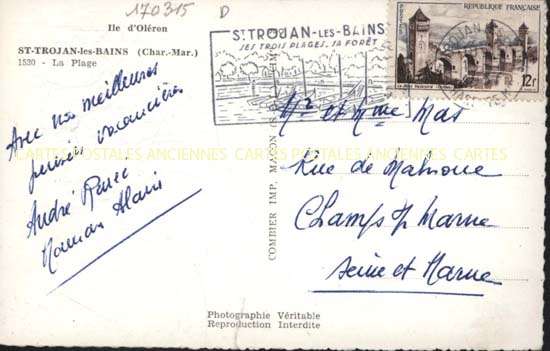 170315
D
Ile d'Oléron
ST-TROJAN-les-BAINS (Char.-Mar.)
1530 - La Plage
Avec nos meilleures
vacancières
André
Alain
COMBIER IMP. MACON
ST TROJAN-LES-BAINS
SES TROIS PLAGES, SA FORÊT
RÉPUBLIQUE FRANÇAISE
POSTES
12F
Mr et Mme Mas
Rue de Malnoue
Champs s/ Marne
Seine et Marne
CARTES POSTALES ANCIENNES CARTES POSTALES ANCIENNES CARTES
Photographie Véritable
Reproduction Interdite